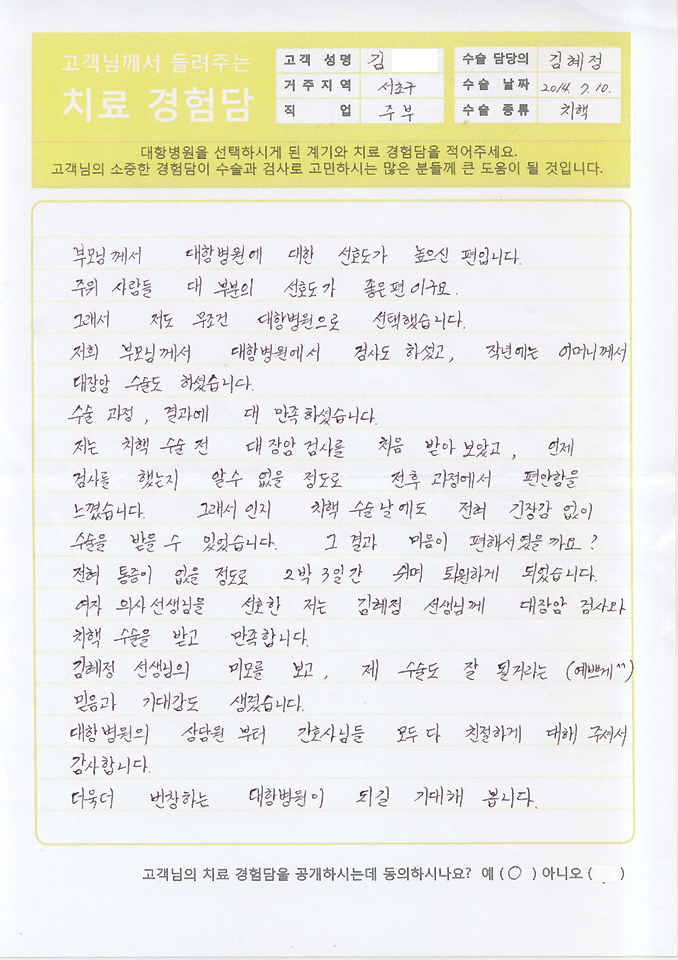 고객님께서 들려주는
치료 경험담
고객 성명 김
거주지역 서초구
직 업 주부
수술 담당의 김혜정
수술 날짜 2014. 7. 10.
수술 종류 치핵
대항병원을 선택하시게 된 계기와 치료 경험담을 적어주세요.
고객님의 소중한 경험담이 수술과 검사로 고민하시는 많은 분들께 큰 도움이 될 것입니다.
부모님께서 대항병원에 대한 선호도가 높으신 편입니다.
주위 사람들 대 부분의 선호도가 좋은편이구요.
그래서 저도 무조건 대항병원으로 선택했습니다.
저희 부모님께서 대항병원에서 검사도 하셨고, 작년에는 어머니께서
대장암 수술도 하셨습니다.
수술 과정, 결과에 대 만족하셨습니다.
저는 치핵 수술 전 대장암 검사를 처음 받아 보았고, 언제
검사를 했는지 알수 없을 정도로 전후 과정에서 편안함을
느꼈습니다. 그래서 인지 치핵 수술 날에도 전혀 긴장감 없이
수술을 받을 수 있었습니다. 그 결과 마음이 편해서였을까요?
전혀 통증이 없을 정도로 2박 3일간 쉬며 퇴원하게 되었습니다.
여자 의사선생님을 선호한 저는 김혜정 선생님께 대장암 검사와
치핵 수술을 받고 만족합니다.
김혜정 선생님의 미모를 보고, 제 수술도 잘 될거라는 (예쁘게^^)
믿음과 기대감도 생겼습니다.
대항병원의 상담원 부터 간호사님들 모두 다 친절하게 대해 주셔서
감사합니다.
더욱더 번창하는 대항병원이 되길 기대해 봅니다.
고객님의 치료 경험담을 공개하시는데 동의하시나요? 예 (○) 아니오 ( )